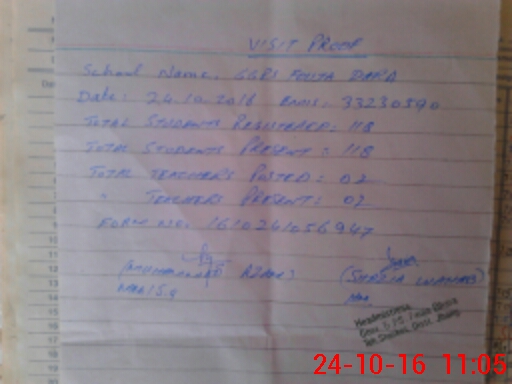 VISIT PROOF
School Name: GGPS FOUJA DARA
Date: 24.10.2016 EMIS: 33230390
TOTAL STUDENTS REGISTERED: 118
TOTAL STUDENTS PRESENT: 118
TOTAL TEACHERS POSTED: 02
" TEACHERS PRESENT: 02
FORM NO: 1610241056947
(MUHAMMAD
Headmistress
24-10-16 11:05